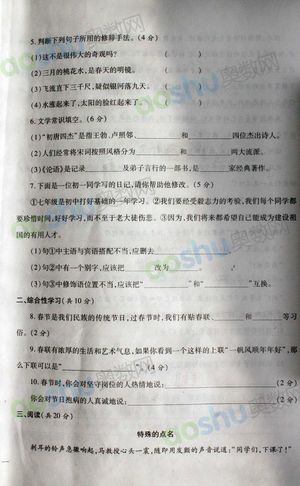 5.判断下列句子所用的修辞手法。(4分)
(1)这不是很伟大的奇观吗?
(2)三月的桃花水,是春天的明镜。
(3)飞流直下三千尺,疑似银河落九天。
(4)水涨起来了,太阳的脸红起来了。
6.文学常识填空。(6分)
(1)“初唐四杰”是指王勃、卢照邻、和四位杰出诗人。
(2)人们经常将宋词按照风格分为和两大流派。
(3)《论语》是记录及弟子言行的一部书,是家经典著作。
7.下面是一位初一同学写的日记,请你帮助他修改。(5分)
①七年级是初中打好基础的一年学习。②我们要经受毅志力的考验,我们每个同学都
要珍惜时间,好好学习,而不至于老大徒伤悲。③因为,我们将来都希望自己能成为建设祖
国的有用人才。
(1)句①中主语与宾语搭配不当,应删去
(2)句②中有一个别字,应该把改为。
(3)句③中修饰语位置不当,应该把“”和“”互换。
二、综合性学习(共10分)
8.春节是我们民族的传统节日,过春节时,我们有贴春联、和等习
俗。(2分)
9.春联有浓厚的生活和艺术气息,如果你看到一个这样的上联“一帆风顺年年好”,那
么下联可以是“”(4分)
10.春节时,你会对坚守岗位的人热情地说:(2分)
你会对节日抱病的人真诚地说:(2分)
三、阅读(共20分)
特殊的点名
刺耳的铃声急骤响起,马教授心头一震,随即用发颤的声音说道:“同学们,下课了……”
aoshu奥数网
aoshu奥数网
aoshu奥数网